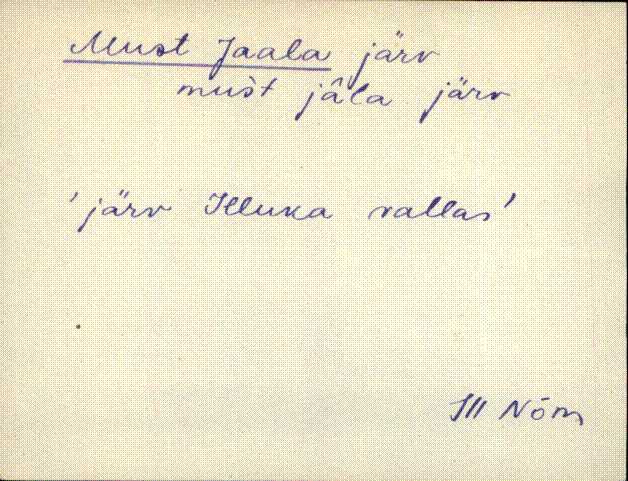 Must Jaala järv
mušt jâla järv
'järv Illuka vallas'
Ill Nõm